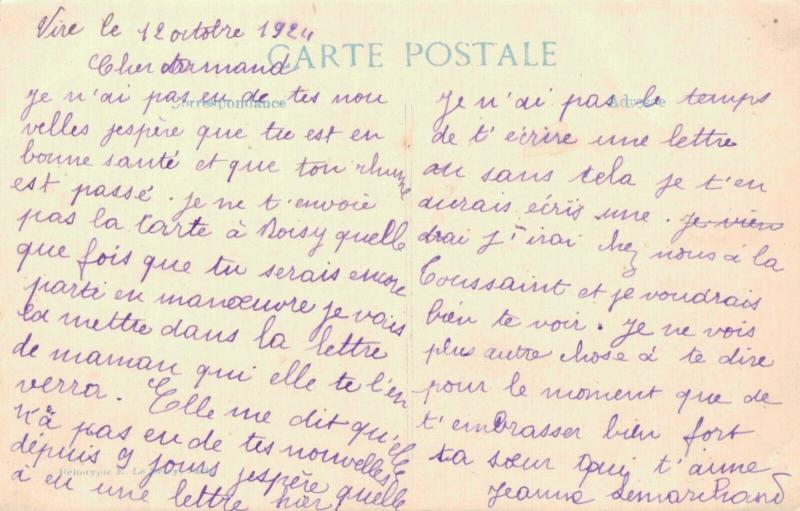 Vire le 12 octobre 1924
CARTE POSTALE
Cher Armand
Correspondance
je n'ai pas eu de tes nou
velles jespère que tu est en
bonne santé et que ton rhume
est passé. je ne t'envoie
pas la Carte à Noisy quelle
que fois que tu serais encore
parti en manœuvre je vais
la mettre dans la lettre
de maman qui elle te l'en
verra. Elle me dit qu'elle
n'a pas eu de tes nouvelles
depuis 9 jours jespère quelle
à eu une lettre hier
Adresse
Je n'ai pas le temps
de t'écrire une lettre
au sans cela je t'en
aurais écris une. je vien
drai j'irai chez nous à la
Toussaint et je voudrais
bien te voir. Je ne vois
plus autre chose à te dire
pour le moment que de
t'embrasser bien fort
ta sœur qui t'aime
Jeanne Lemarchand
Héliotypie E. Le